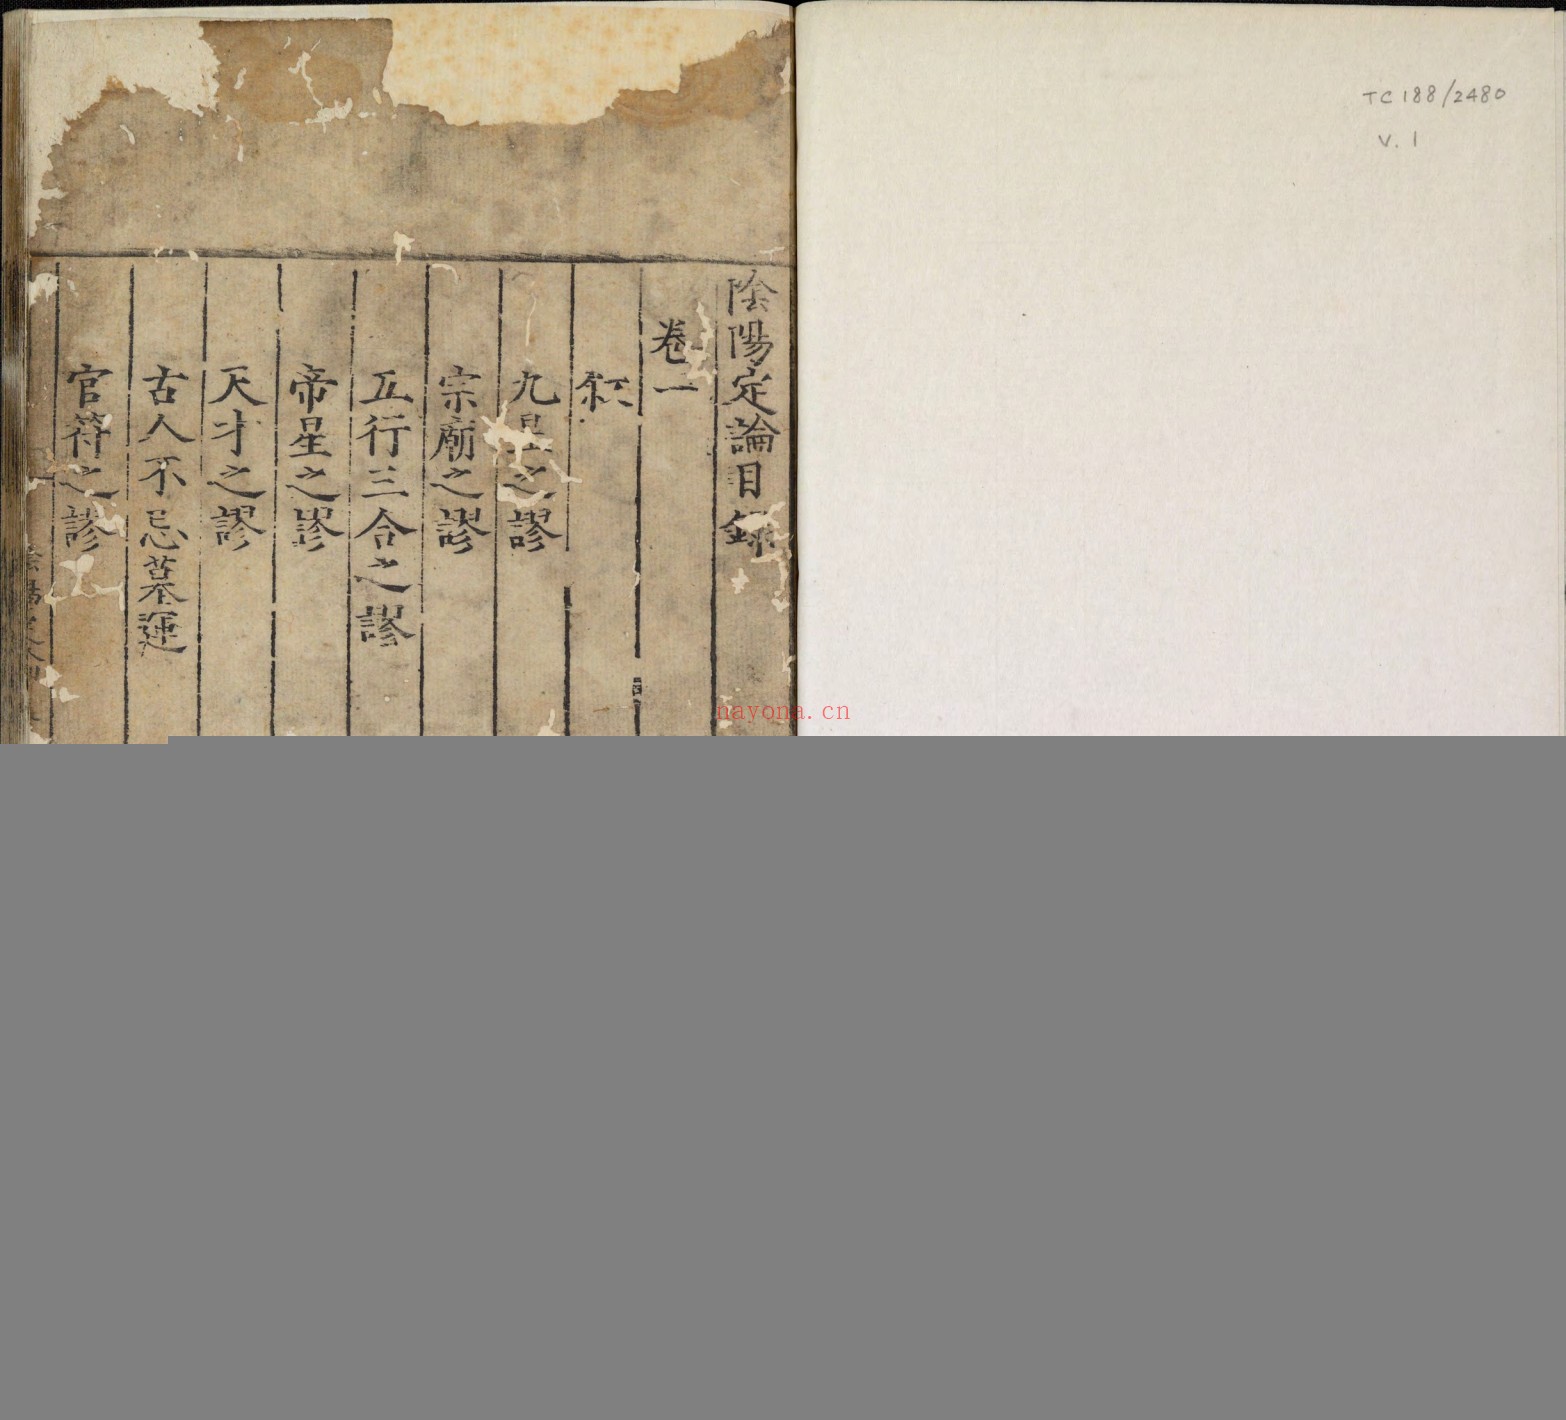 TC 188/2480
V. 1
陰陽定論目錄
卷一
叙
九星之謬
宗廟之謬
五行三合之謬
帝星之謬
天才之謬
古人不忌墓運
官符之謬
nayona.cn